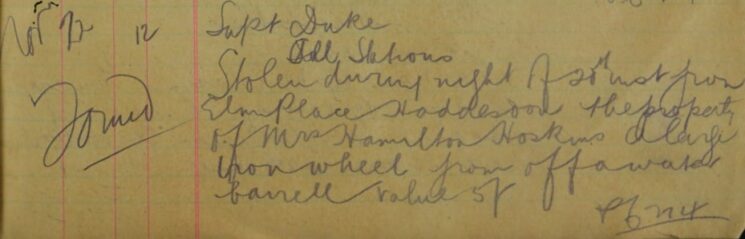 Nov 22 12 Supt Duke
All Stations
Stolen during night of 20th inst from
Elm Place Hoddesdon the property
Found
of Mrs Hamilton Hoskins a large
Iron wheel from off a water
barrell value 5/